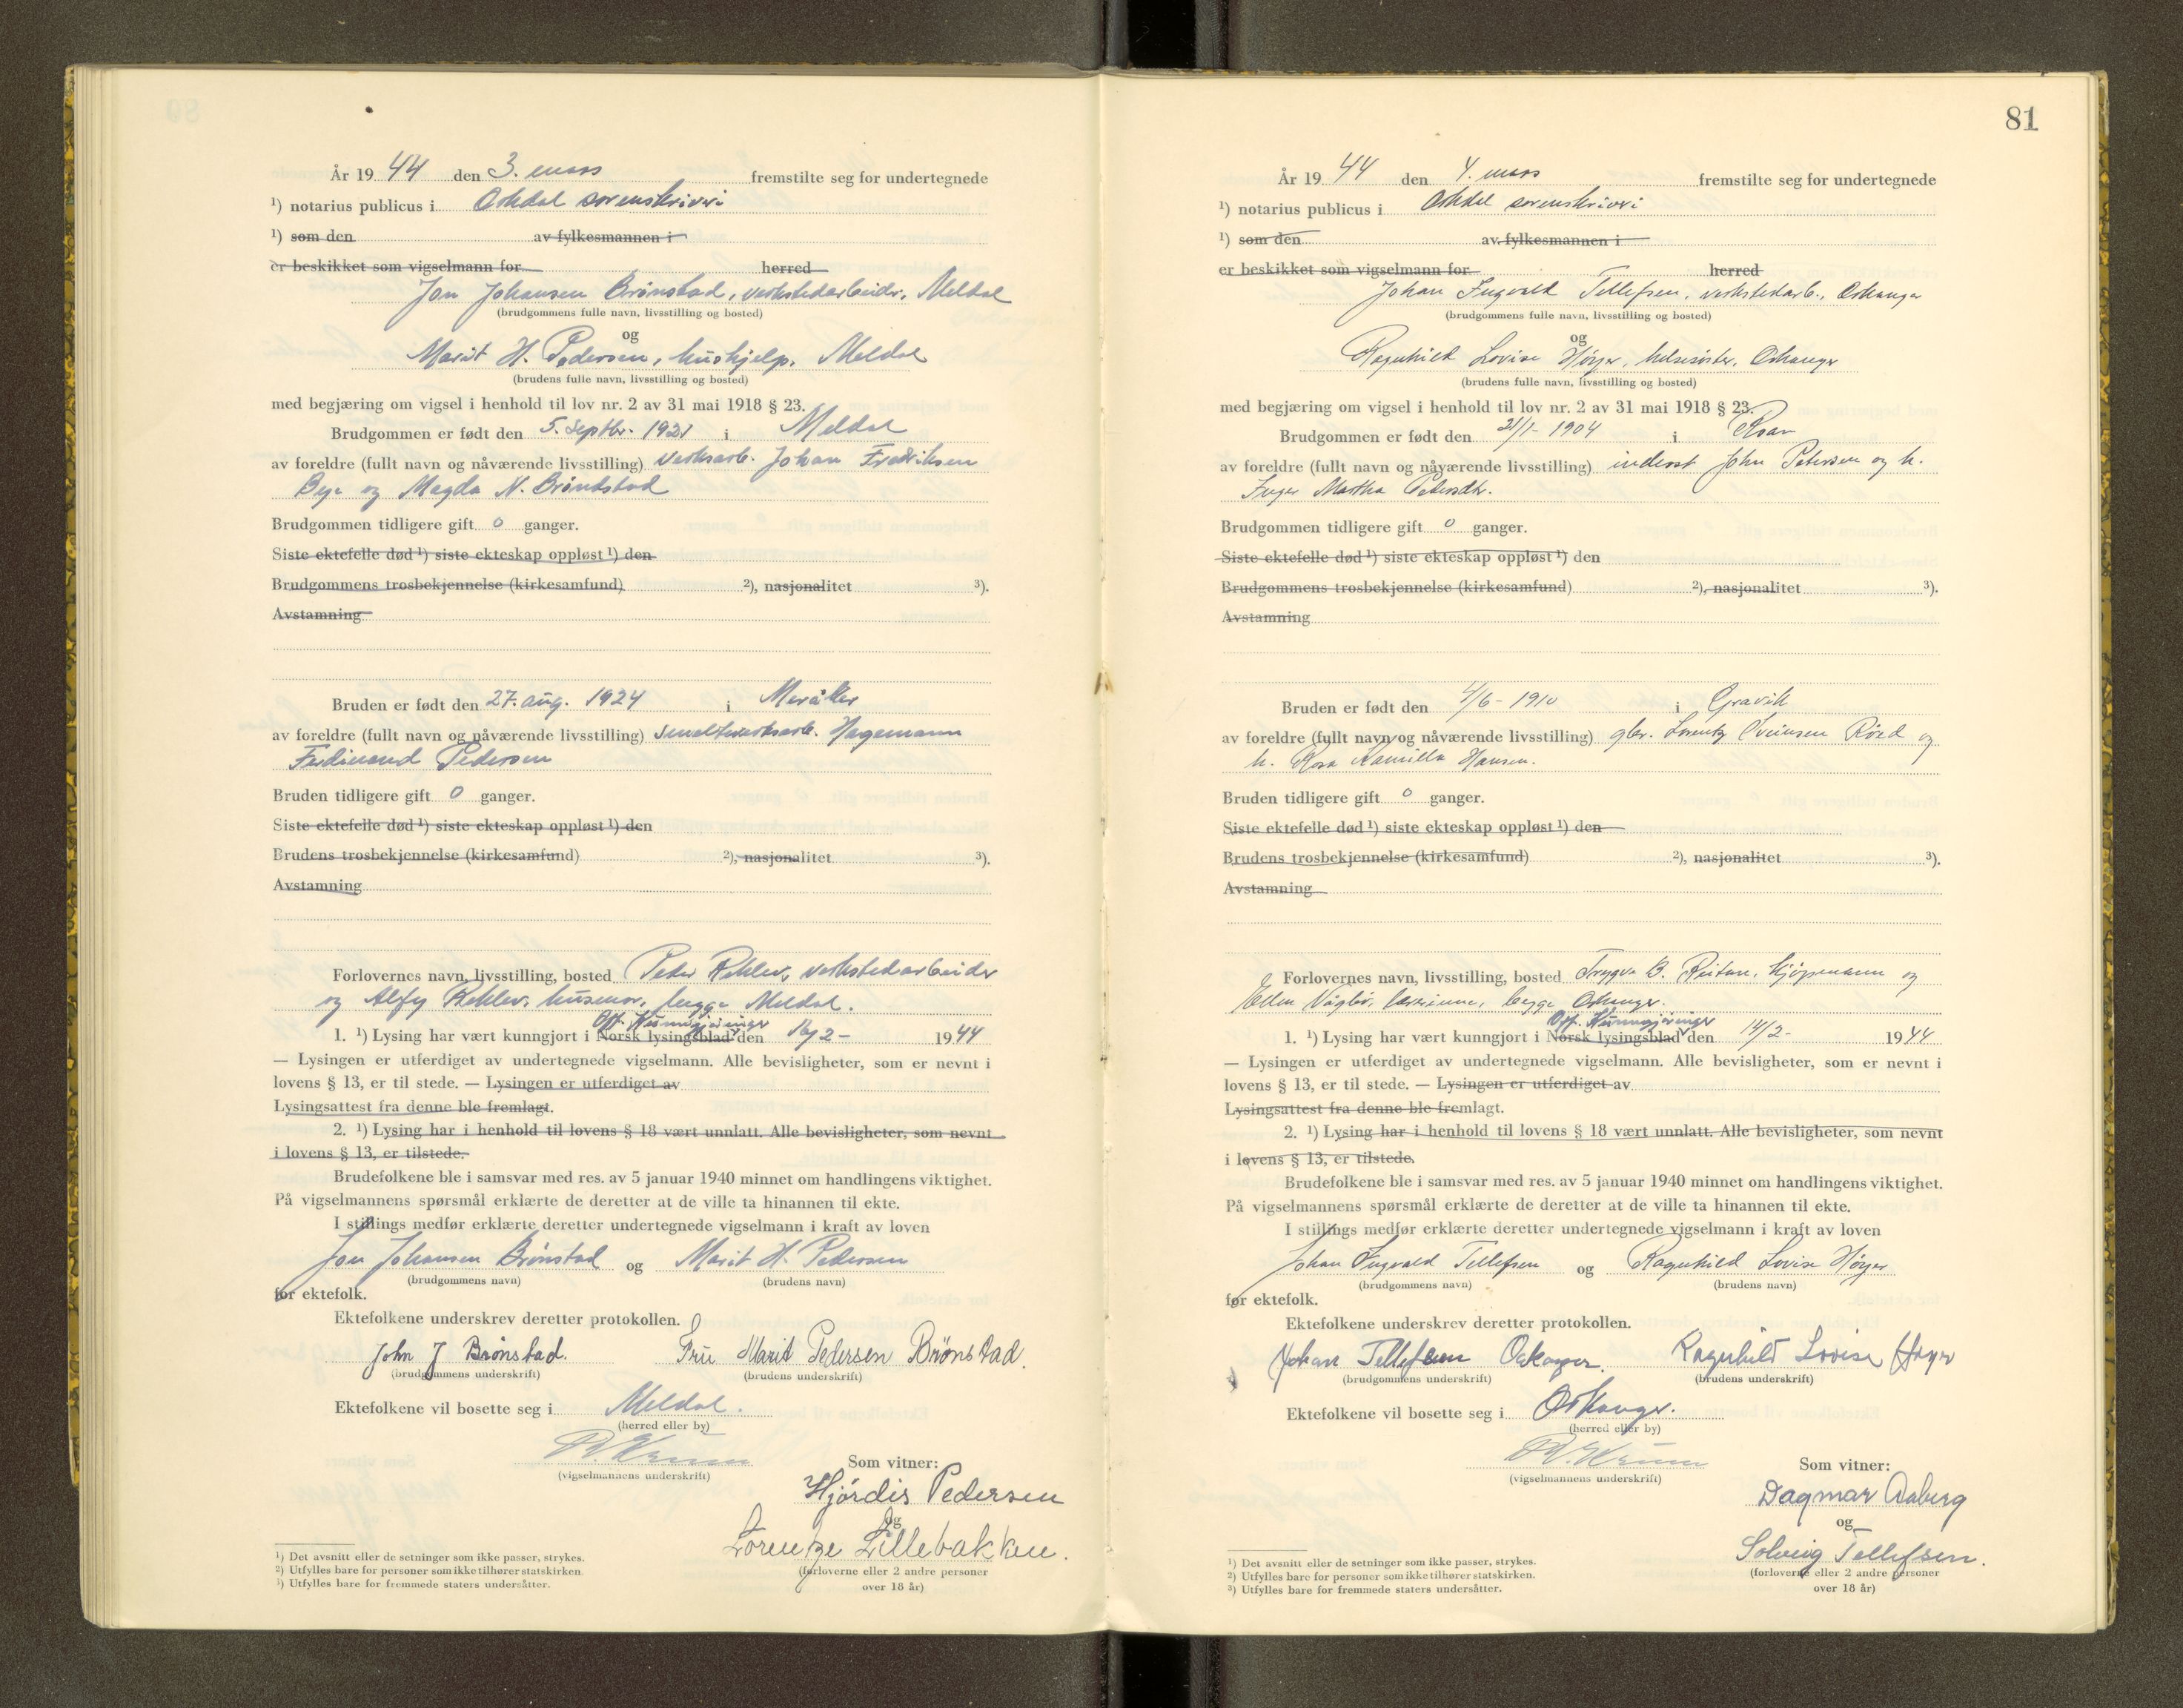 År 19 44 den 3. mars fremstilte seg for undertegnede
¹) notarius publicus i Orkdal sorenskriveri
¹) som den av fylkesmannen i
er beskikket som vigselmann for herred
Jon Johansen Brønstad, verkstedarbeider, Meldal
(brudgommens fulle navn, livsstilling og bosted)
og
Marit H. Pedersen, hushjelp, Meldal
(brudens fulle navn, livsstilling og bosted)
med begjæring om vigsel i henhold til lov nr. 2 av 31 mai 1918 § 23.
Brudgommen er født den 5. septbr. 1921 i Meldal
av foreldre (fullt navn og nåværende livsstilling) verksarb. Johan Fredriksen
Bye og Magda N. Brøndstad
Brudgommen tidligere gift 0 ganger.
Siste ektefelle død ¹) siste ekteskap oppløst ¹) den
Brudgommens trosbekjennelse (kirkesamfund) ²), nasjonalitet ³).
Avstamning
Bruden er født den 27. aug. 1924 i Meråker
av foreldre (fullt navn og nåværende livsstilling) smelteverksarb. Hagemann
Ferdinand Pedersen
Bruden tidligere gift 0 ganger.
Siste ektefelle død ¹) siste ekteskap oppløst ¹) den
Brudens trosbekjennelse (kirkesamfund) ²), nasjonalitet ³).
Avstamning
Forlovernes navn, livsstilling, bosted Peder verkstedarbeider
og husmor, begge Meldal.
Off. Kunngjøringer
1. ¹) Lysing har vært kunngjort i Norsk lysingsblad den 1944
— Lysingen er utferdiget av undertegnede vigselmann. Alle bevisligheter, som er nevnt i
lovens § 13, er til stede. — Lysingen er utferdiget av
Lysingsattest fra denne ble fremlagt.
2. ¹) Lysing har i henhold til lovens § 18 vært unnlatt. Alle bevisligheter, som nevnt
i lovens § 13, er tilstede.
Brudefolkene ble i samsvar med res. av 5 januar 1940 minnet om handlingens viktighet.
På vigselmannens spørsmål erklærte de deretter at de ville ta hinannen til ekte.
I stillings medfør erklærte deretter undertegnede vigselmann i kraft av loven
Jon Johansen Brønstad og Marit H. Pedersen
(brudgommens navn) (brudens navn)
for ektefolk.
Ektefolkene underskrev deretter protokollen.
John J Brønstad. Fru Marit Pedersen Brønstad.
(brudgommens underskrift) (brudens underskrift)
Ektefolkene vil bosette seg i Meldal.
(herred eller by)
(vigselmannens underskrift)
Som vitner:
Hjördis Pedersen
og
Lorentze Lillebakken.
(forloverne eller 2 andre personer
over 18 år)
¹) Det avsnitt eller de setninger som ikke passer, strykes.
²) Utfylles bare for personer som ikke tilhører statskirken.
³) Utfylles bare for fremmede staters undersåtter.
81
År 19 44 den 4. mars fremstilte seg for undertegnede
¹) notarius publicus i Orkdal sorenskriveri
¹) som den av fylkesmannen i
er beskikket som vigselmann for herred
Johan Ingvald Tellefsen, verkstedarb., Orkanger
(brudgommens fulle navn, livsstilling og bosted)
og
Ragnhild Lovise Høyer, helsesøster, Orkanger
(brudens fulle navn, livsstilling og bosted)
med begjæring om vigsel i henhold til lov nr. 2 av 31 mai 1918 § 23.
Brudgommen er født den 21/1- 1904 i Roan
av foreldre (fullt navn og nåværende livsstilling) inderst John Petersen og h.
Inger Martha Petersdtr.
Brudgommen tidligere gift 0 ganger.
Siste ektefelle død ¹) siste ekteskap oppløst ¹) den
Brudgommens trosbekjennelse (kirkesamfund) ²), nasjonalitet ³).
Avstamning
Bruden er født den 4/6- 1910 i Gravik
av foreldre (fullt navn og nåværende livsstilling) gbr. Lorentz Sveinsen Röed og
h. Rosa Kamilla Hansen.
Bruden tidligere gift 0 ganger.
Siste ektefelle død ¹) siste ekteskap oppløst ¹) den
Brudens trosbekjennelse (kirkesamfund) ²), nasjonalitet ³).
Avstamning
Forlovernes navn, livsstilling, bosted Trygve B. Reitan, kjøpmann og
Ellen Vågbø, lærerinne, begge Orkanger.
Off. Kunngjøringer
1. ¹) Lysing har vært kunngjort i Norsk lysingsblad den 14/2- 1944
— Lysingen er utferdiget av undertegnede vigselmann. Alle bevisligheter, som er nevnt i
lovens § 13, er til stede. — Lysingen er utferdiget av
Lysingsattest fra denne ble fremlagt.
2. ¹) Lysing har i henhold til lovens § 18 vært unnlatt. Alle bevisligheter, som nevnt
i lovens § 13, er tilstede.
Brudefolkene ble i samsvar med res. av 5 januar 1940 minnet om handlingens viktighet.
På vigselmannens spørsmål erklærte de deretter at de ville ta hinannen til ekte.
I stillings medfør erklærte deretter undertegnede vigselmann i kraft av loven
Johan Ingvald Tellefsen og Ragnhild Lovise Høyer
(brudgommens navn) (brudens navn)
for ektefolk.
Ektefolkene underskrev deretter protokollen.
Johan Tellefsen Orkanger. Ragnhild Lovise Høyer
(brudgommens underskrift) (brudens underskrift)
Ektefolkene vil bosette seg i Orkanger.
(herred eller by)
(vigselmannens underskrift)
Som vitner:
Dagmar Aaberg
og
Solveig Tellefsen.
(forloverne eller 2 andre personer
over 18 år)
¹) Det avsnitt eller de setninger som ikke passer, strykes.
²) Utfylles bare for personer som ikke tilhører statskirken.
³) Utfylles bare for fremmede staters undersåtter.